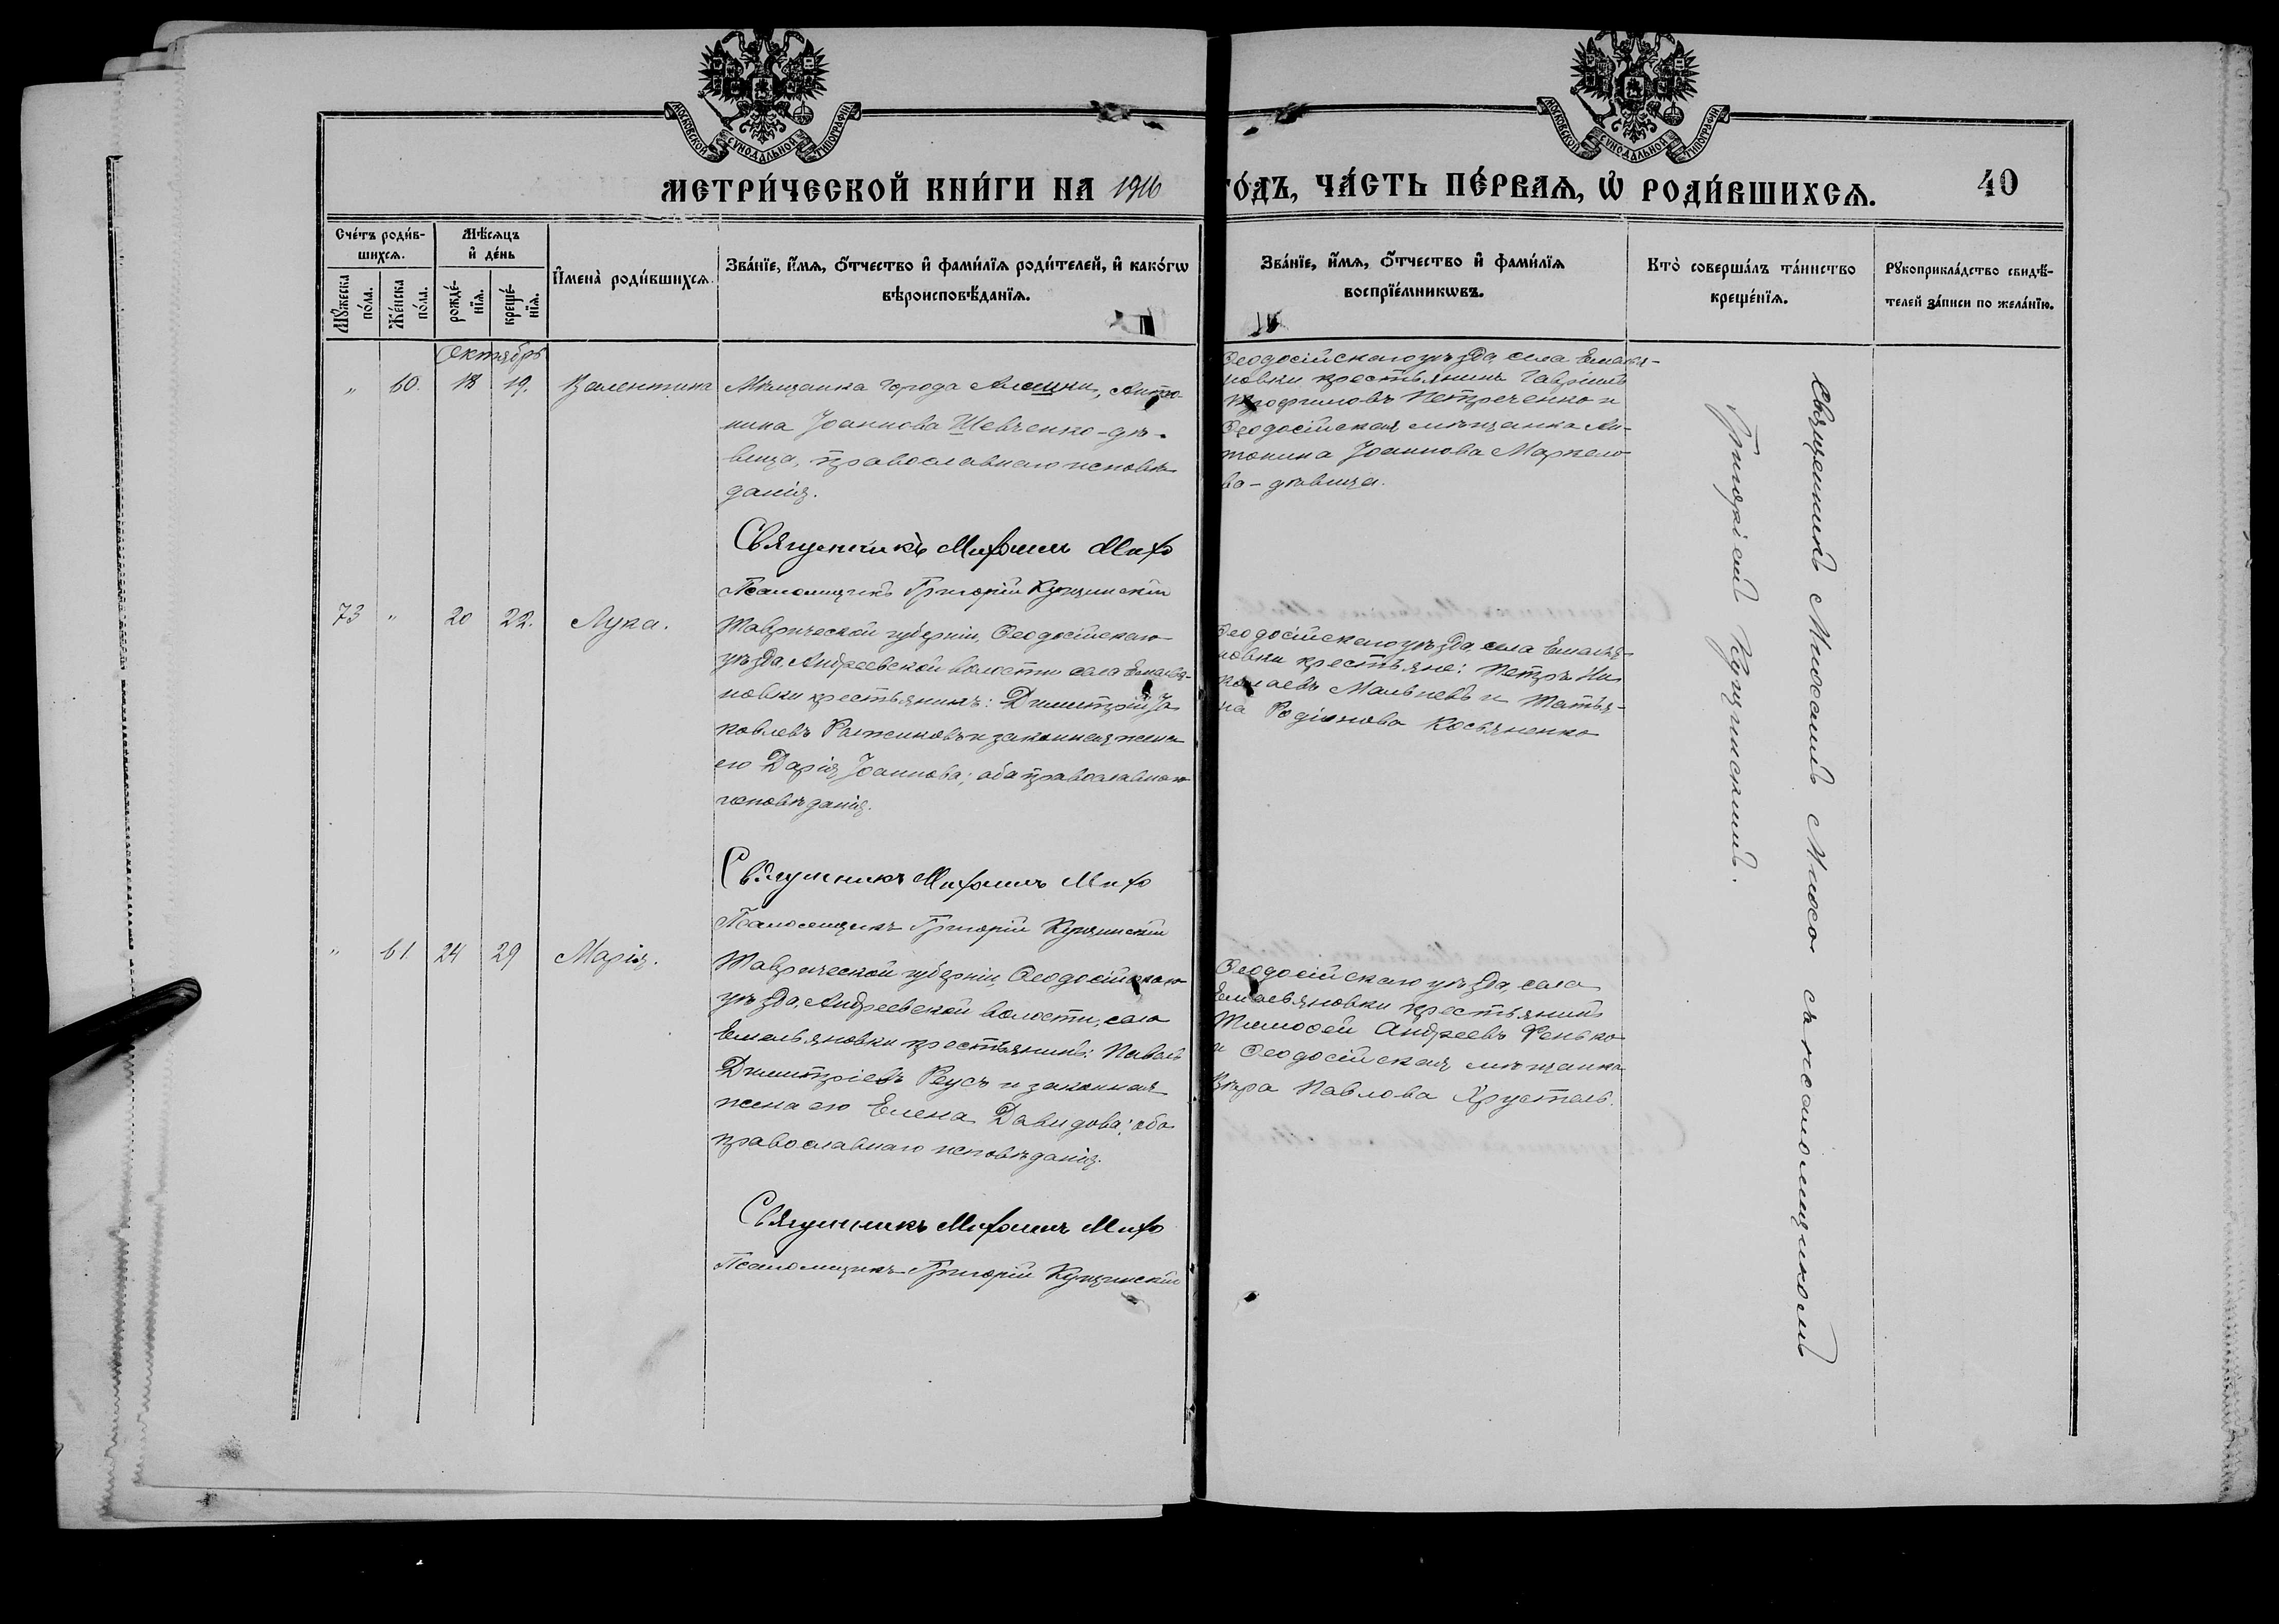 МОСКОВСКОЙ СѴНОДАЛЬНОЙ ТИПОГРАФИ
МОСКОВСКОЙ СѴНОДАЛЬНОЙ ТИПОГРАФИ
МЕТРИ́ЧЕСКОЙ КНИ́ГИ НА 1916 ГО́ДЪ, ЧА́СТЬ ПЕ́РВАѦ, Ѡ҆ РОДИ́ВШИХСѦ. 40
Сче́тъ роди́в-
шихсѧ.
Мꙋ́жеска
по́ла.
Же́нска
по́ла.
Мѣ́сѧцъ
и҆ де́нь
рожде́-
нїѧ.
креще́-
нїѧ.
И҆мена̀ роди́вшихсѧ.
Зва́нїе, и҆́мѧ, ѻ҆́тчество и҆ фами́лїѧ роди́телей, и҆ како́гѡ
вѣроисповѣ́данїѧ.
Зва́нїе, и҆́мѧ, ѻ҆́тчество и҆ фами́лїѧ
воспрїе́мникѡвъ.
Кто̀ соверша́лъ та́инство
креще́нїѧ.
Рꙋкоприкла́дство свидѣ́-
телей за́писи по жела́нїю.
Октябрь
" 60. 18 19. Валентина
Мѣщанка города Алешки, Анто-
нина Іоаннова Шевченко-дѣ-
вица, православнаго исповѣ-
данія.
Священникъ Мифодий Мифо
Псаломщикъ Григорій Кущинскій
Ѳеодосійскаго уѣзда, села Емелья-
новки крестьянинъ Гавріилъ
Трофимовъ Петреченко и
Ѳеодосійская мѣщанка Ан-
тонина Іоаннова Маркело-
ва-дѣвица.
73 " 20 22. Лука.
Таврической губерніи, Ѳеодосійскаго
уѣзда, Андреевской волости села Емелья-
новки крестьянинъ: Димитрій Іа
ковлевъ и законная жена
его Дарія Іоаннова; оба православнаго
исповѣданія.
Священникъ Мифодий Мифо
Псаломщикъ Григорій Кущинскій
Ѳеодосійскаго уѣзда села Емелья-
новки крестьяне: Петръ Ни
колаевъ Мальневъ и Татья-
на Родіонова Косьяненко
" 61. 24 29 Марія.
Таврической губерніи, Ѳеодосійскаго
уѣзда, Андреевской волости, села
Емельяновки крестьянинъ: Павелъ
Димитріевъ Реусъ и законная
жена его Елена Давидова; оба
православнаго исповѣданія.
Священникъ Мифодий Мифо
Псаломщикъ Григорій Кущинскій
Ѳеодосійскаго уѣзда, села
Емельяновки крестьянинъ
Тимоѳей Андреевъ Фенько
и Ѳеодосійская мѣщанка
Вѣра Павлова Хрусталь.
Священникъ съ псаломщикомъ
Григоріемъ Кущинскимъ.